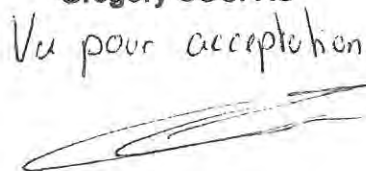 Vu pour acceptation